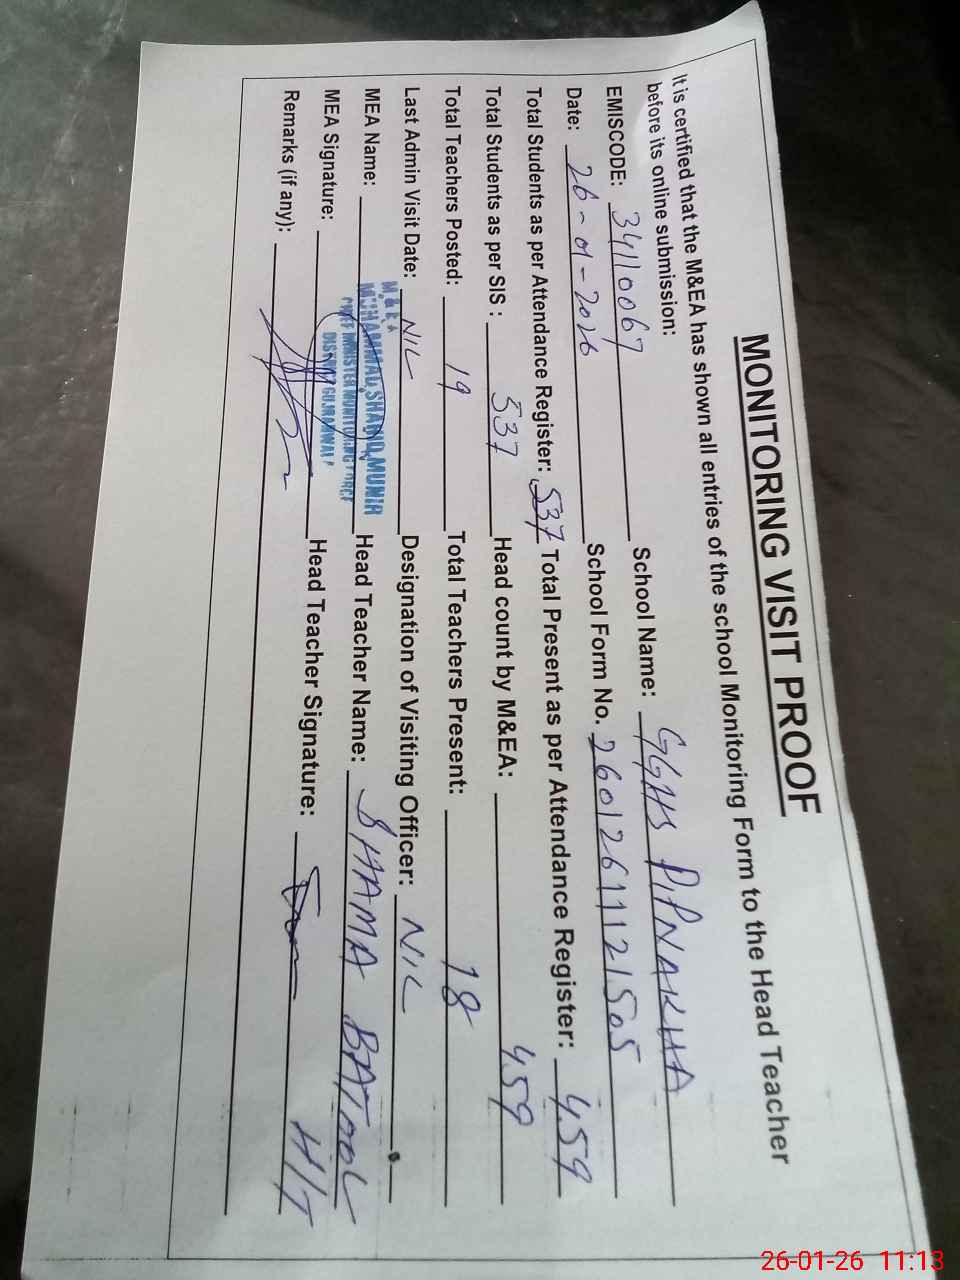 MONITORING VISIT PROOF
It is certified that the M&EA has shown all entries of the school Monitoring Form to the Head Teacher
before its online submission:
EMISCODE: 34110067 School Name: GGHS PIPNAKHA
Date: 26-01-2026 School Form No. 2601261121505
Total Students as per Attendance Register: 537 Total Present as per Attendance Register: 459
Total Students as per SIS : 537 Head count by M&EA: 459
Total Teachers Posted: 19 Total Teachers Present: 18
Last Admin Visit Date: NIL Designation of Visiting Officer: NIL
M&EA
MEA Name: MUHAMMAD SHAHID MUNIR Head Teacher Name: SHAMA BATOOL
CHIEF MINISTER MONITORING FORCE
DISTT GUJRANWALA
MEA Signature: Head Teacher Signature: H/T
Remarks (if any):
26-01-26 11:13